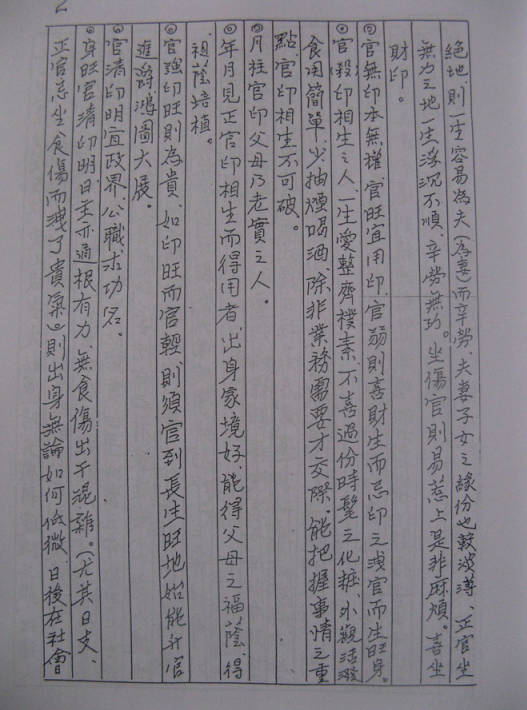 2
絕地則一生容易為夫(為妻)而辛勞、夫妻子女之緣份也較淡薄、正官坐
無力之地一生浮沉不順、辛勞無功。坐傷官則易惹上是非麻煩。喜坐
財印。
◎官無印本無權、官旺宜用印、官弱則喜財生而忌印之洩官而生旺身。
◎官殺印相生之人、一生愛整齊樸素、不喜過份時髦之化粧、外觀活潑
食用簡單、少抽煙喝酒、除非業務需要才交際、能把握事情之重
點、官印相生不可破。
◎月柱官印父母乃老實之人。
◎年月見正官印相生而得用者、出身家境好、能得父母之福蔭、得
祖蔭培植。
◎官強印旺則為貴、如印旺而官輕、則須官到長生旺地始能升官
進爵鴻圖大展。
◎官清印明宜政界、公職求功名。
◎身旺官清印明日主亦通根有力、無食傷出干混雜。(尤其日支、
正官忌坐食傷而洩了貴氣)則出身無論如何低微、日後在社會